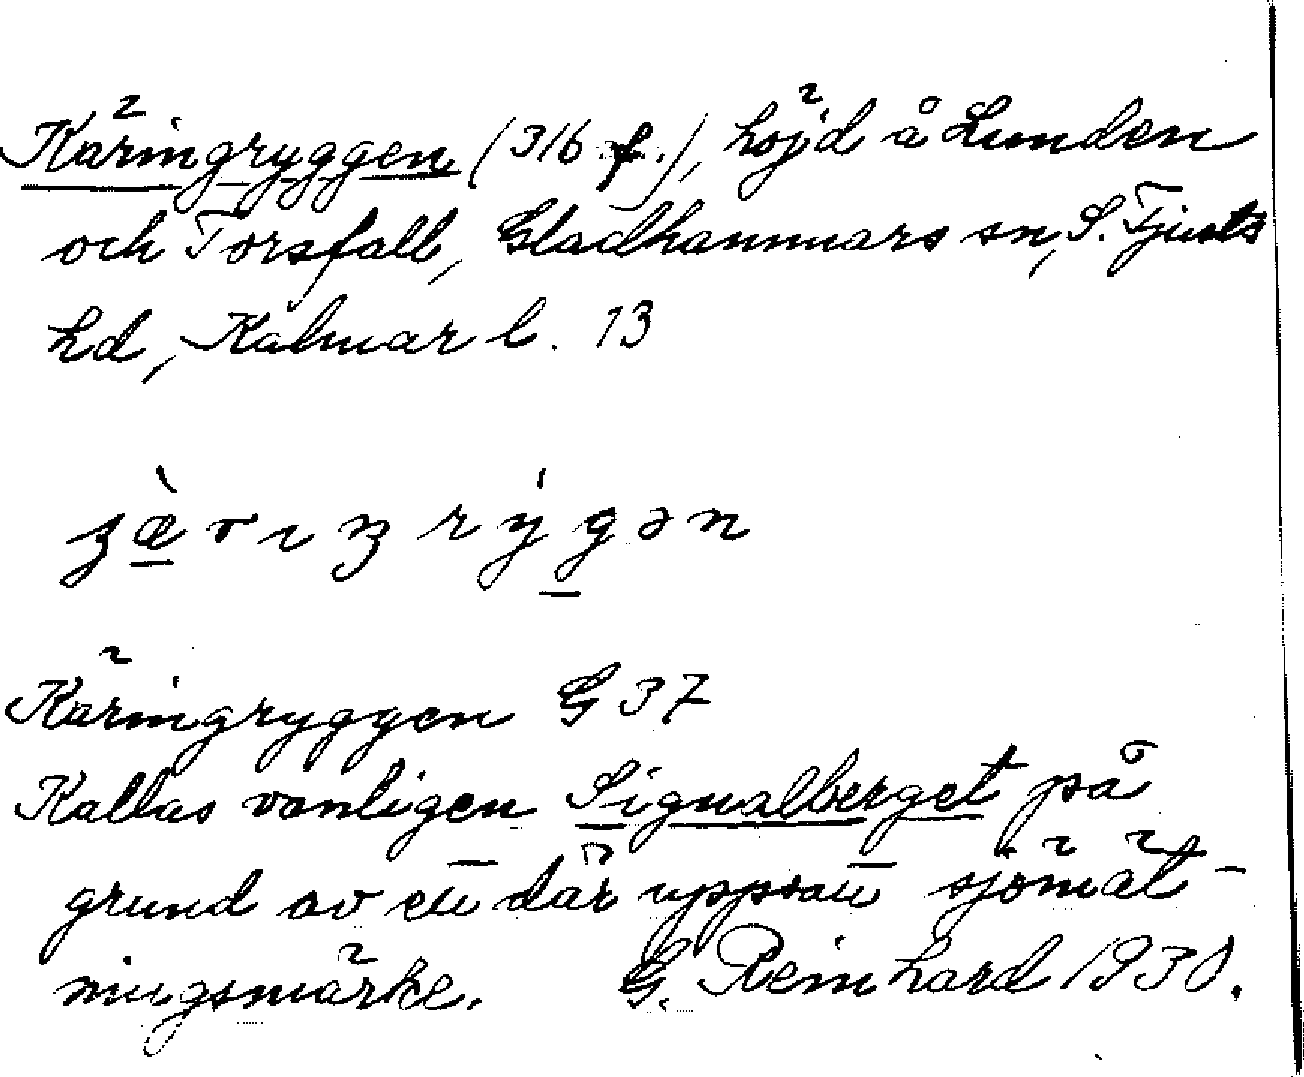 Käringryggen (316 f.), höjd å Lunden
och Torsfall, Gladhammars sn, S. Tjusts
hd, Kalmar l. 13
Käringryggen G 37
Kallas vanligen Signalberget på
grund av en där uppsatt sjömät-
ningsmärke. G. Reinhard 1930.